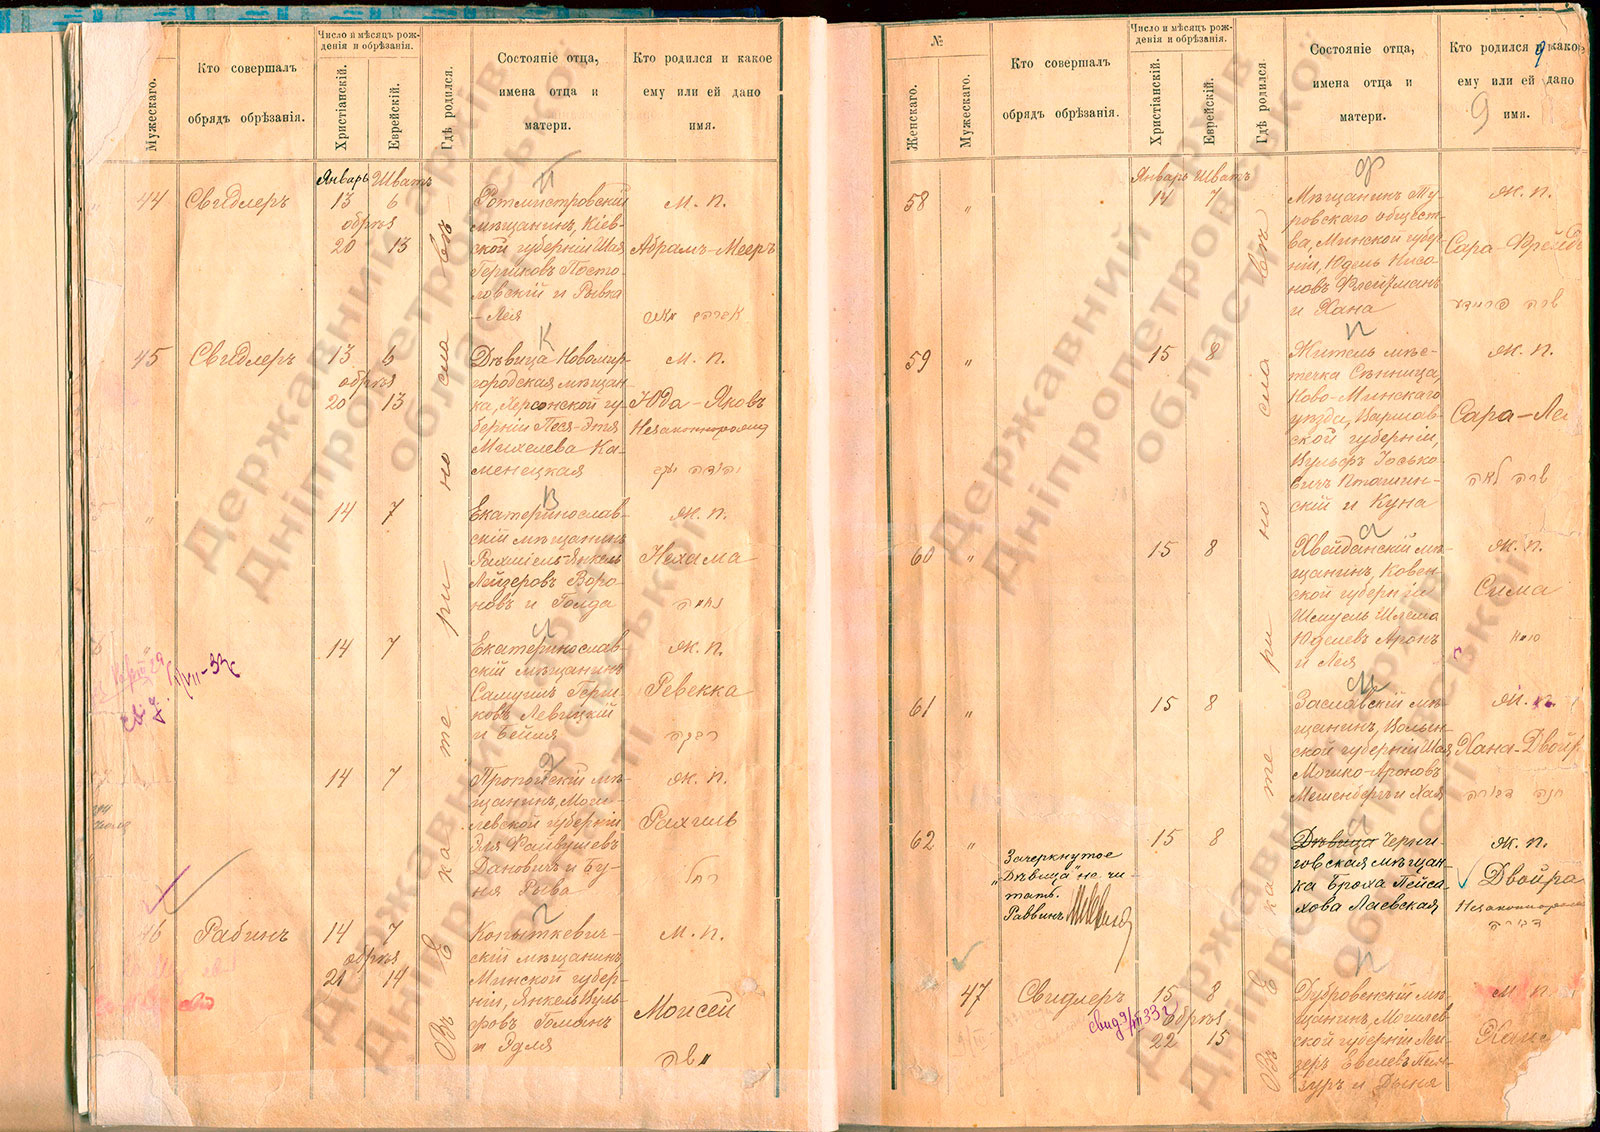 Мужескаго.
Кто совершалъ
обрядъ обрѣзанія.
Число и мѣсяцъ рож-
денія и обрѣзанія.
Христіанскій.
Еврейскій.
Гдѣ родился.
Состояніе отца,
имена отца и
матери.
Кто родился и какое
ему или ей дано
имя.
Январь Шватъ
44 Свидлеръ 13 6
обрѣз
20 13
Ротмистровскій
мѣщанинъ, Кіев-
ской губерніи Шая
Гершковъ Посто-
ловскій и Рывка
- Лея
м. п.
Абрамъ-Мееръ
45 Свидлеръ 13 6
обрѣз
20 13
Дѣвица Новомир-
городская мѣщан-
ка, Херсонской гу-
берніи Песя-Этя
Михелева Ка-
менецкая
м. п.
Юда-Яковъ
14 7
Екатеринослав-
скій мѣщанинъ
Рахміель-Янкель
Лейзеровъ Воро-
новъ и Голда
ж. п.
Нехама
נחמה
14 7
Екатеринослав-
скій мѣщанинъ
Самуилъ Герш-
ковъ Левицкій
и Бейля
ж. п.
Ревекка
רבקה
14 7
Пропойскій мѣ-
щанинъ, Моги-
левской губерніи
Эля Файвушевъ
Дановичъ и Бу-
ня Рыва
ж. п.
Рахиль
רחל
46 Рабинъ 14 7
обрѣз
21 14
Копыткевич-
скій мѣщанинъ
Минской губер-
ніи, Янкель Вуль-
фовъ Гоманъ
и Эдля
м. п.
Моисей
משה
Въ Екатеринославѣ
№
Женскаго.
Мужескаго.
Кто совершалъ
обрядъ обрѣзанія.
Число и мѣсяцъ рож-
денія и обрѣзанія.
Христіанскій.
Еврейскій.
Гдѣ родился
Состояніе отца,
имена отца и
матери.
Кто родился и какое
ему или ей дано
9 имя.
Январь Шватъ
58 " 14 7
Мѣщанинъ Ту-
ровскаго общест-
ва, Минской губер-
ніи, Юдель Нисо-
новъ Флейтманъ
и Хана
ж. п.
Сара-Фрейд
שרה פריידע
59 " 15 8
Житель мѣс-
течка Сѣнница,
Ново-Минскаго
уѣзда, Варшав-
ской губерніи,
Вульфъ Іосько-
вичъ Пташин-
скій и Куна
ж. п.
Сара-Ле
שרה לאה
60 " 15 8
Хвейданскій мѣ-
щанинъ, Ковен-
ской губерніи
Шмуель Шлема
Юделевъ Аронъ
и Лея
ж. п.
Сима
סימא
61 " 15 8
Заславскій мѣ-
щанинъ, Волын-
ской губерніи Шая
Мошко-Ароновъ
Мешенбергъ и Хая
ж. п.
Хана-Двойр
חנה דבורה
62 " 15 8
Зачеркнутое
"Дѣвица" не чи-
тать.
Раввинъ
Дѣвица Черни-
говская мѣщан-
ка Броха Пейса-
хова Лаевская
ж. п.
Двойра
דבורה
47 Свидлеръ 15 8
Обрѣз
22 15
Дубровенскій мѣ-
щанинъ, Могилев-
ской губерніи Лей-
зеръ Евелевъ
и Дыня
м. п.
Въ Екатеринославѣ
Державний архів
Дніпропетровської
області